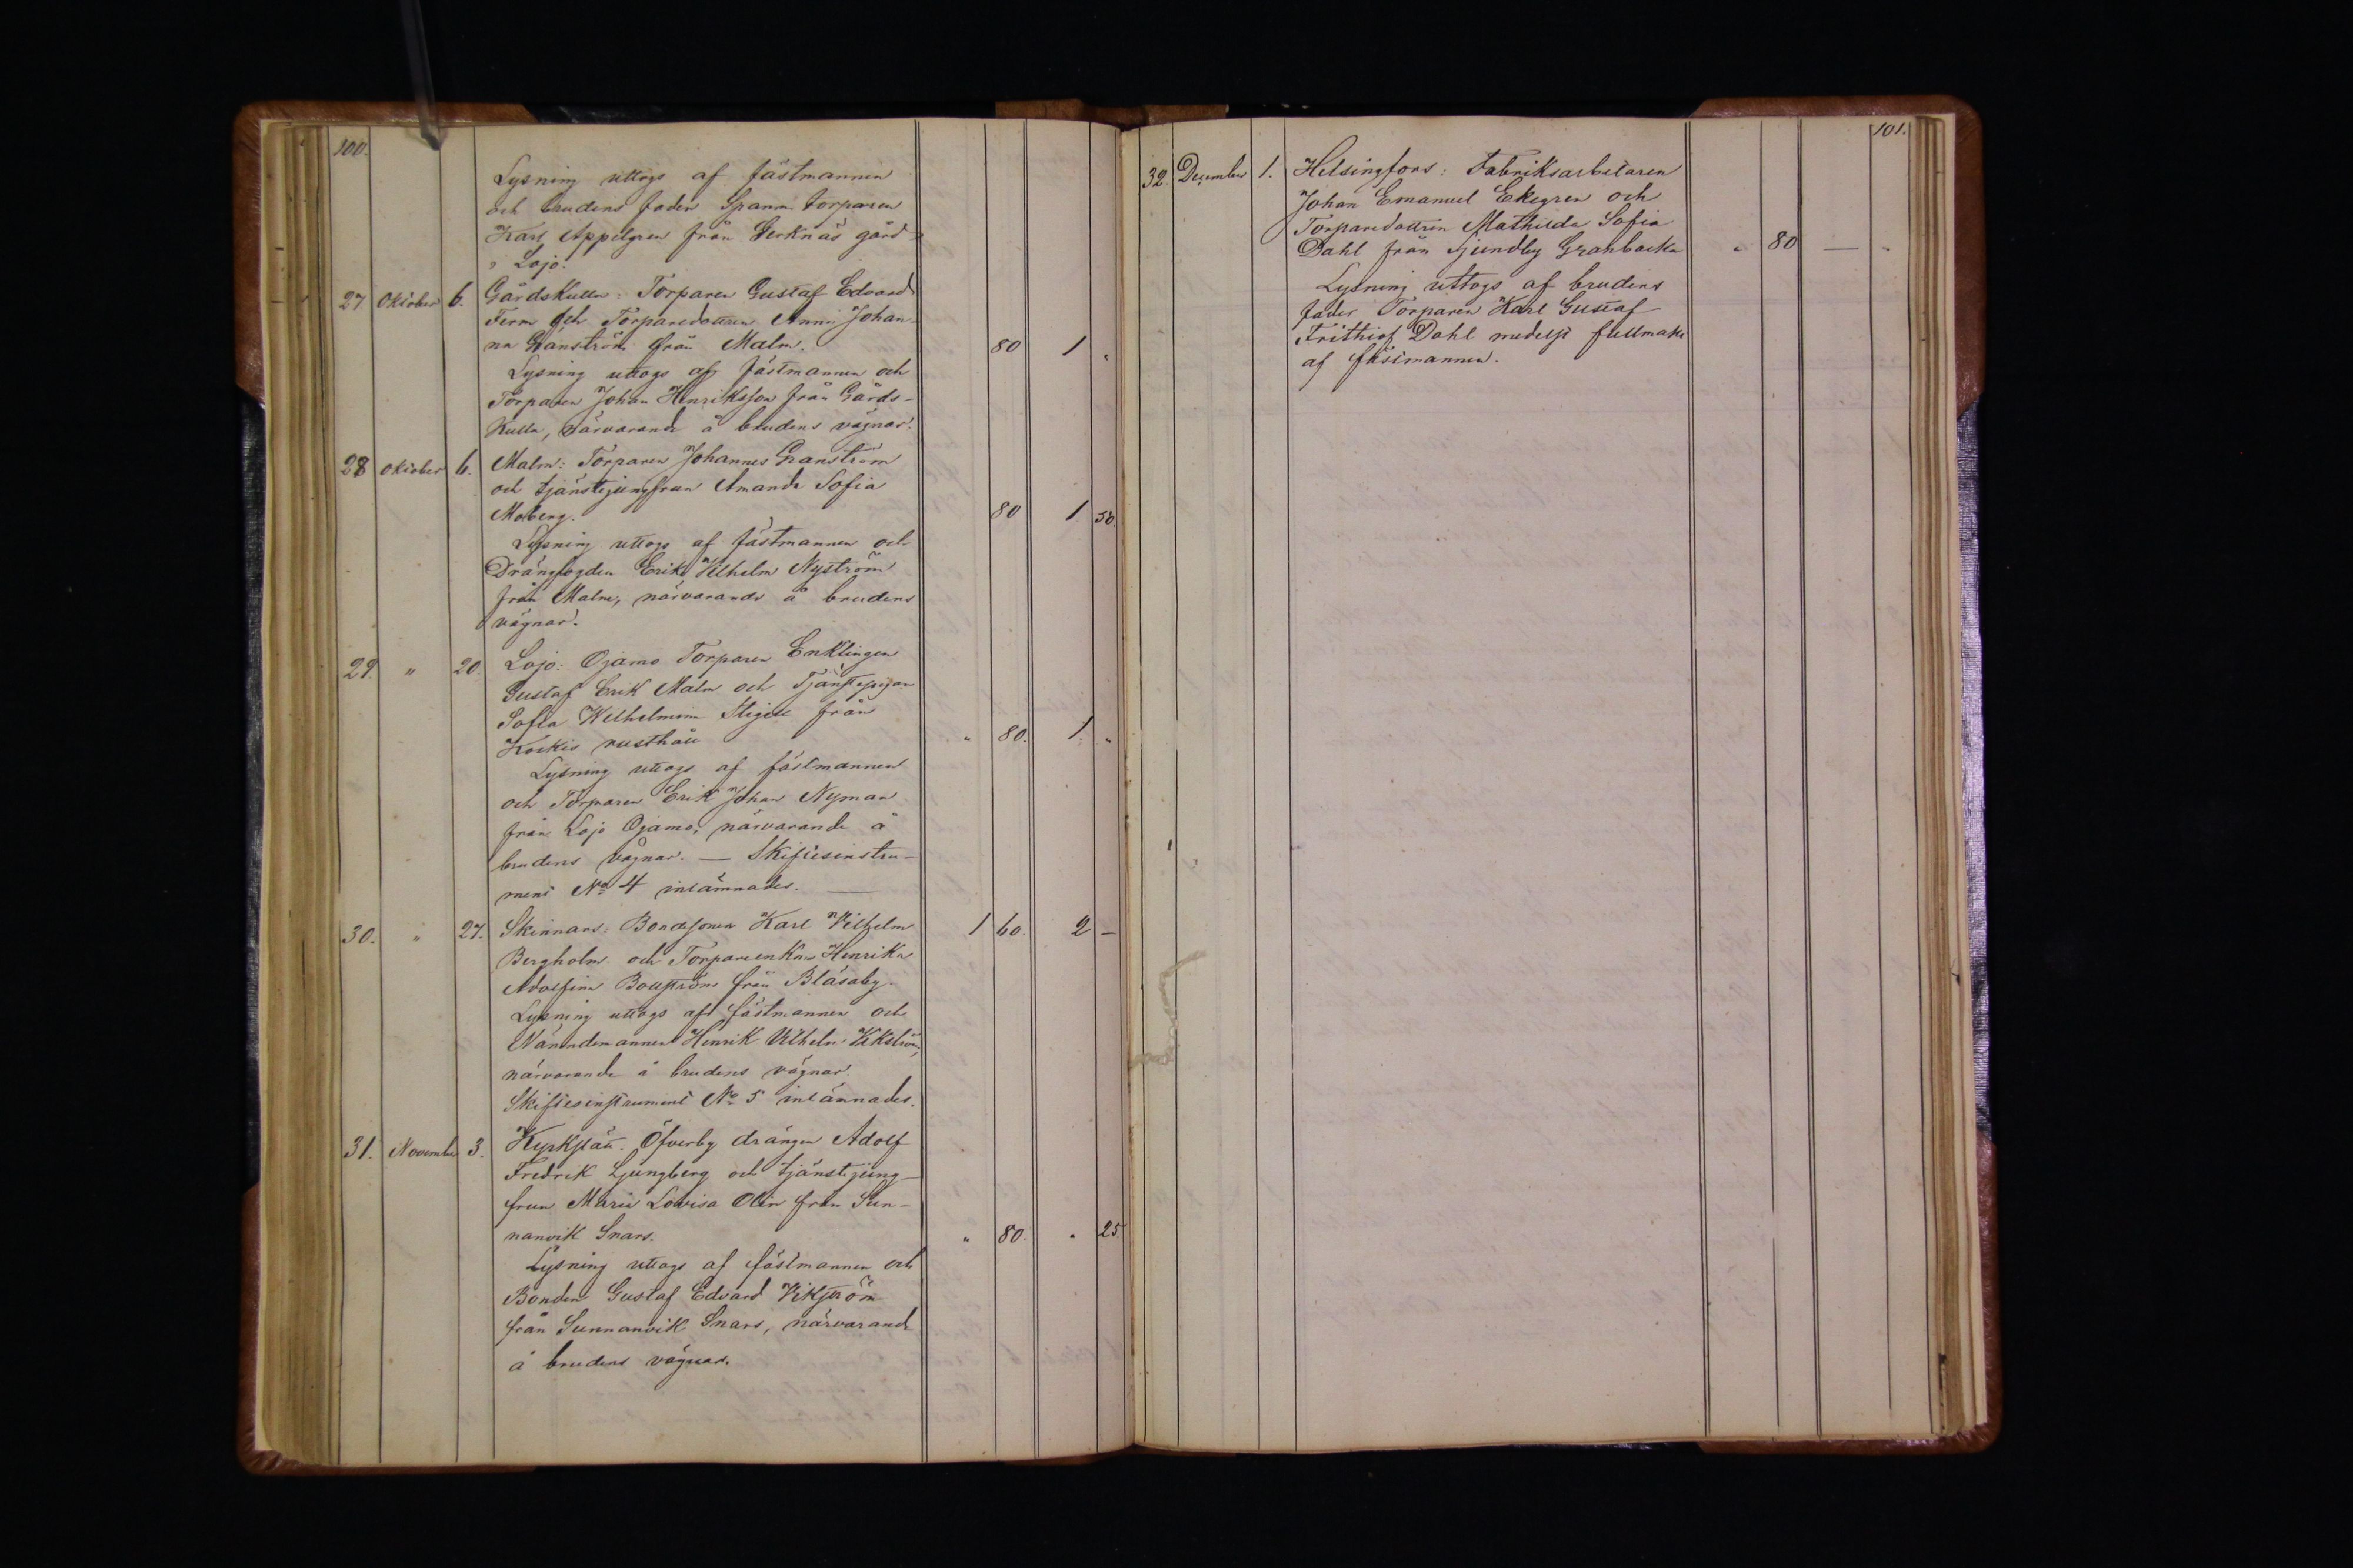 100.
Lysning uttogs af fästmannen
och brudens fader Spanm. torparen
Karl Appelgren från Gerknäs gård
i Lojo.
27 Oktober 6. Gårdskulla: Torparen Gustaf Edvard
Ferm och Torparedottren Anna Johan-
na Granström från Malm. 80 1 "
Lysning uttogs af fästmannen och
Torparen Johan Henriksson från Gårds-
kulla, närvarande å brudens vägnar.
28 Oktober 6. Malm: Torparen Johannes Granström
och tjänstejungfrun Amanda Sofia
Moberg. 80 1 50.
Lysning uttogs af fästmannen och
Drängfogden Erik Vilhelm Nyström
från Malm, närvarande å brudens
vägnar.
29. " 20. Lojo: Ojamo Torparen Enklingen
Gustaf Erik Malm och Tjänstepigan
Sofia Wilhelmina från
Kockis rusthåll " 80. 1. "
Lysning uttogs af fästmannen
och Torparen Erik Johan Nyman
från Lojo Ojamo, närvarande å
brudens vägnar. — Skiftesinstru-
ment No 4 inlämnades. —
30. " 27. Skinnars: Bondesonen Karl Vilhelm 1 60. 2 —
Bergholm och Torpareenkan Henrika
Adolfina Boström från Blåsaby.
Lysning uttogs af fästmannen och
Nämndemannen Henrik Vilhelm Vikström,
närvarande å brudens vägnar.
Skiftesinstrument No 5 inlämnades.
31. November 3. Kyrkslätt. Öfverby drängen Adolf
Fredrik Ljungberg och tjänstejung-
frun Maria Lovisa Olin från Sun-
nanvik Snars. " 80. " 25.
Lysning uttogs af fästmannen och
Bonden Gustaf Edvard Vikström
från Sunnanvik Snars, närvarande
å brudens vägnar.
101.
32. December 1. Helsingfors: Fabriksarbetaren
Johan Emanuel Ekegren och
Torparedottren Mathilda Sofia
Dahl från Sjundby Granbacka " 80 — "
Lysning uttogs af brudens
fader Torparen Karl Gustaf
Frithiof Dahl medelst fullmakt
af fästmannen.